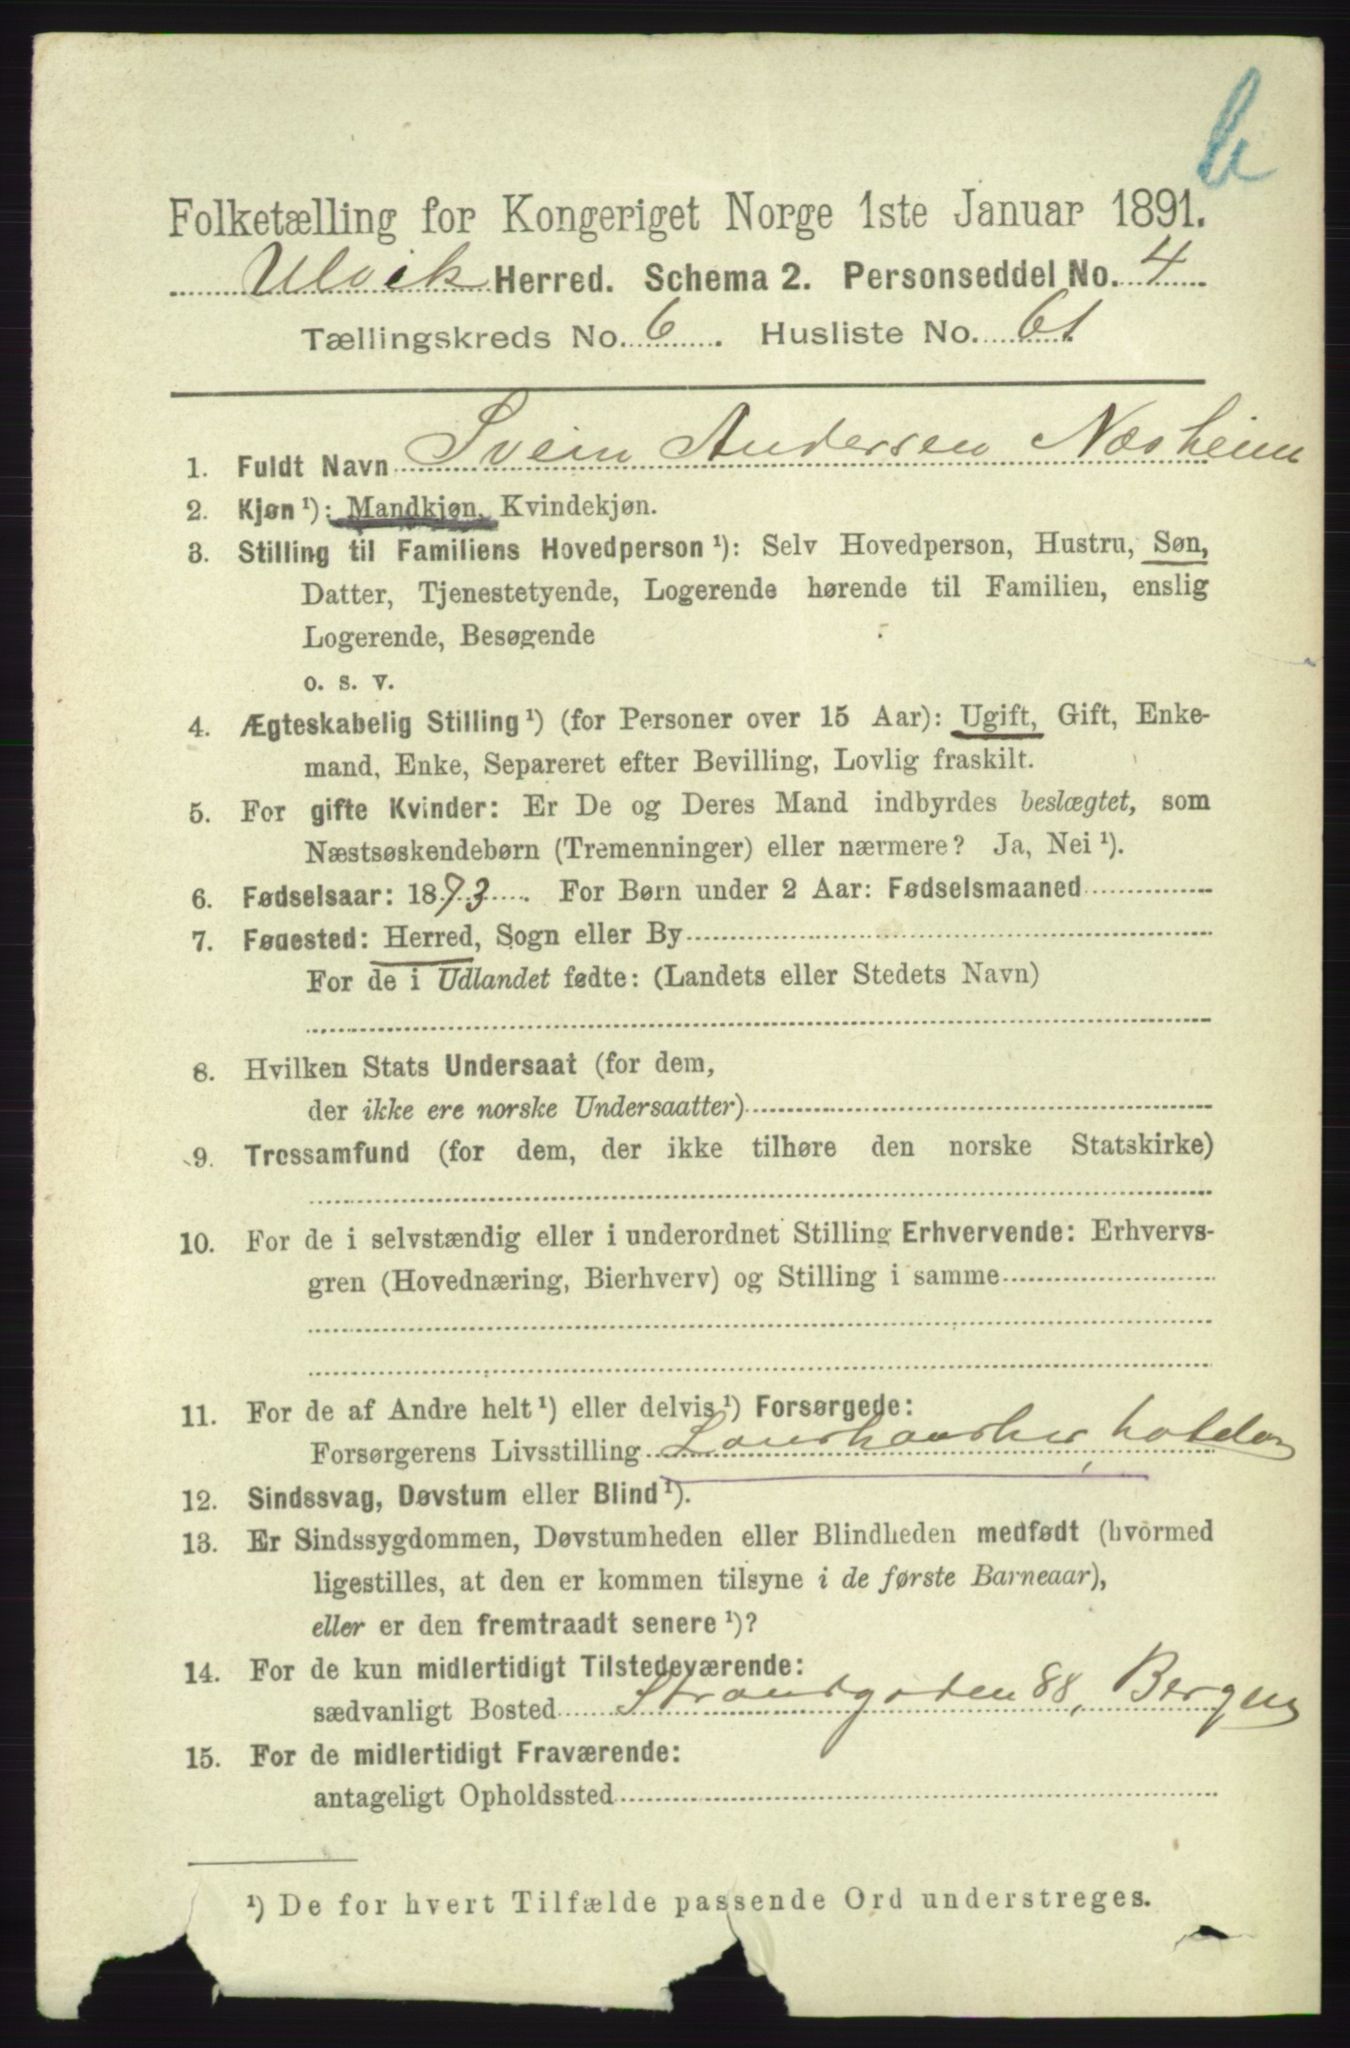 Folketælling for Kongeriget Norge 1ste Januar 1891.
Ulvik Herred. Schema 2. Personseddel No. 4
Tællingskreds No. 6. Husliste No. 61
1. Fuldt Navn Svein Andersen Næsheim
2. Kjøn ¹): Mandkjøn, Kvindekjøn.
3. Stilling til Familiens Hovedperson ¹): Selv Hovedperson, Hustru, Søn,
Datter, Tjenestetyende, Logerende hørende til Familien, enslig
Logerende, Besøgende
o. s. v.
4. Ægteskabelig Stilling ¹) (for Personer over 15 Aar): Ugift, Gift, Enke-
mand, Enke, Separeret efter Bevilling, Lovlig fraskilt.
5. For gifte Kvinder: Er De og Deres Mand indbyrdes beslægtet, som
Næstsøskendebørn (Tremenninger) eller nærmere? Ja, Nei ¹).
6. Fødselsaar: 1873. For Børn under 2 Aar: Fødselsmaaned
7. Fødested: Herred, Sogn eller By
For de i Udlandet fødte: (Landets eller Stedets Navn)
8. Hvilken Stats Undersaat (for dem,
der ikke ere norske Undersaatter)
9. Trossamfund (for dem, der ikke tilhøre den norske Statskirke)
10. For de i selvstændig eller i underordnet Stilling Erhvervende: Erhvervs-
gren (Hovednæring, Bierhverv) og Stilling i samme
11. For de af Andre helt ¹) eller delvis ¹) Forsørgede:
Forsørgerens Livsstilling
12. Sindssvag, Døvstum eller Blind ¹).
13. Er Sindssygdommen, Døvstumheden eller Blindheden medfødt (hvormed
ligestilles, at den er kommen tilsyne i de første Barneaar),
eller er den fremtraadt senere ¹)?
14. For de kun midlertidigt Tilstedeværende:
sædvanligt Bosted Strandgaden 88, Bergen
15. For de midlertidigt Fraværende:
antageligt Opholdssted
¹) De for hvert Tilfælde passende Ord understreges.